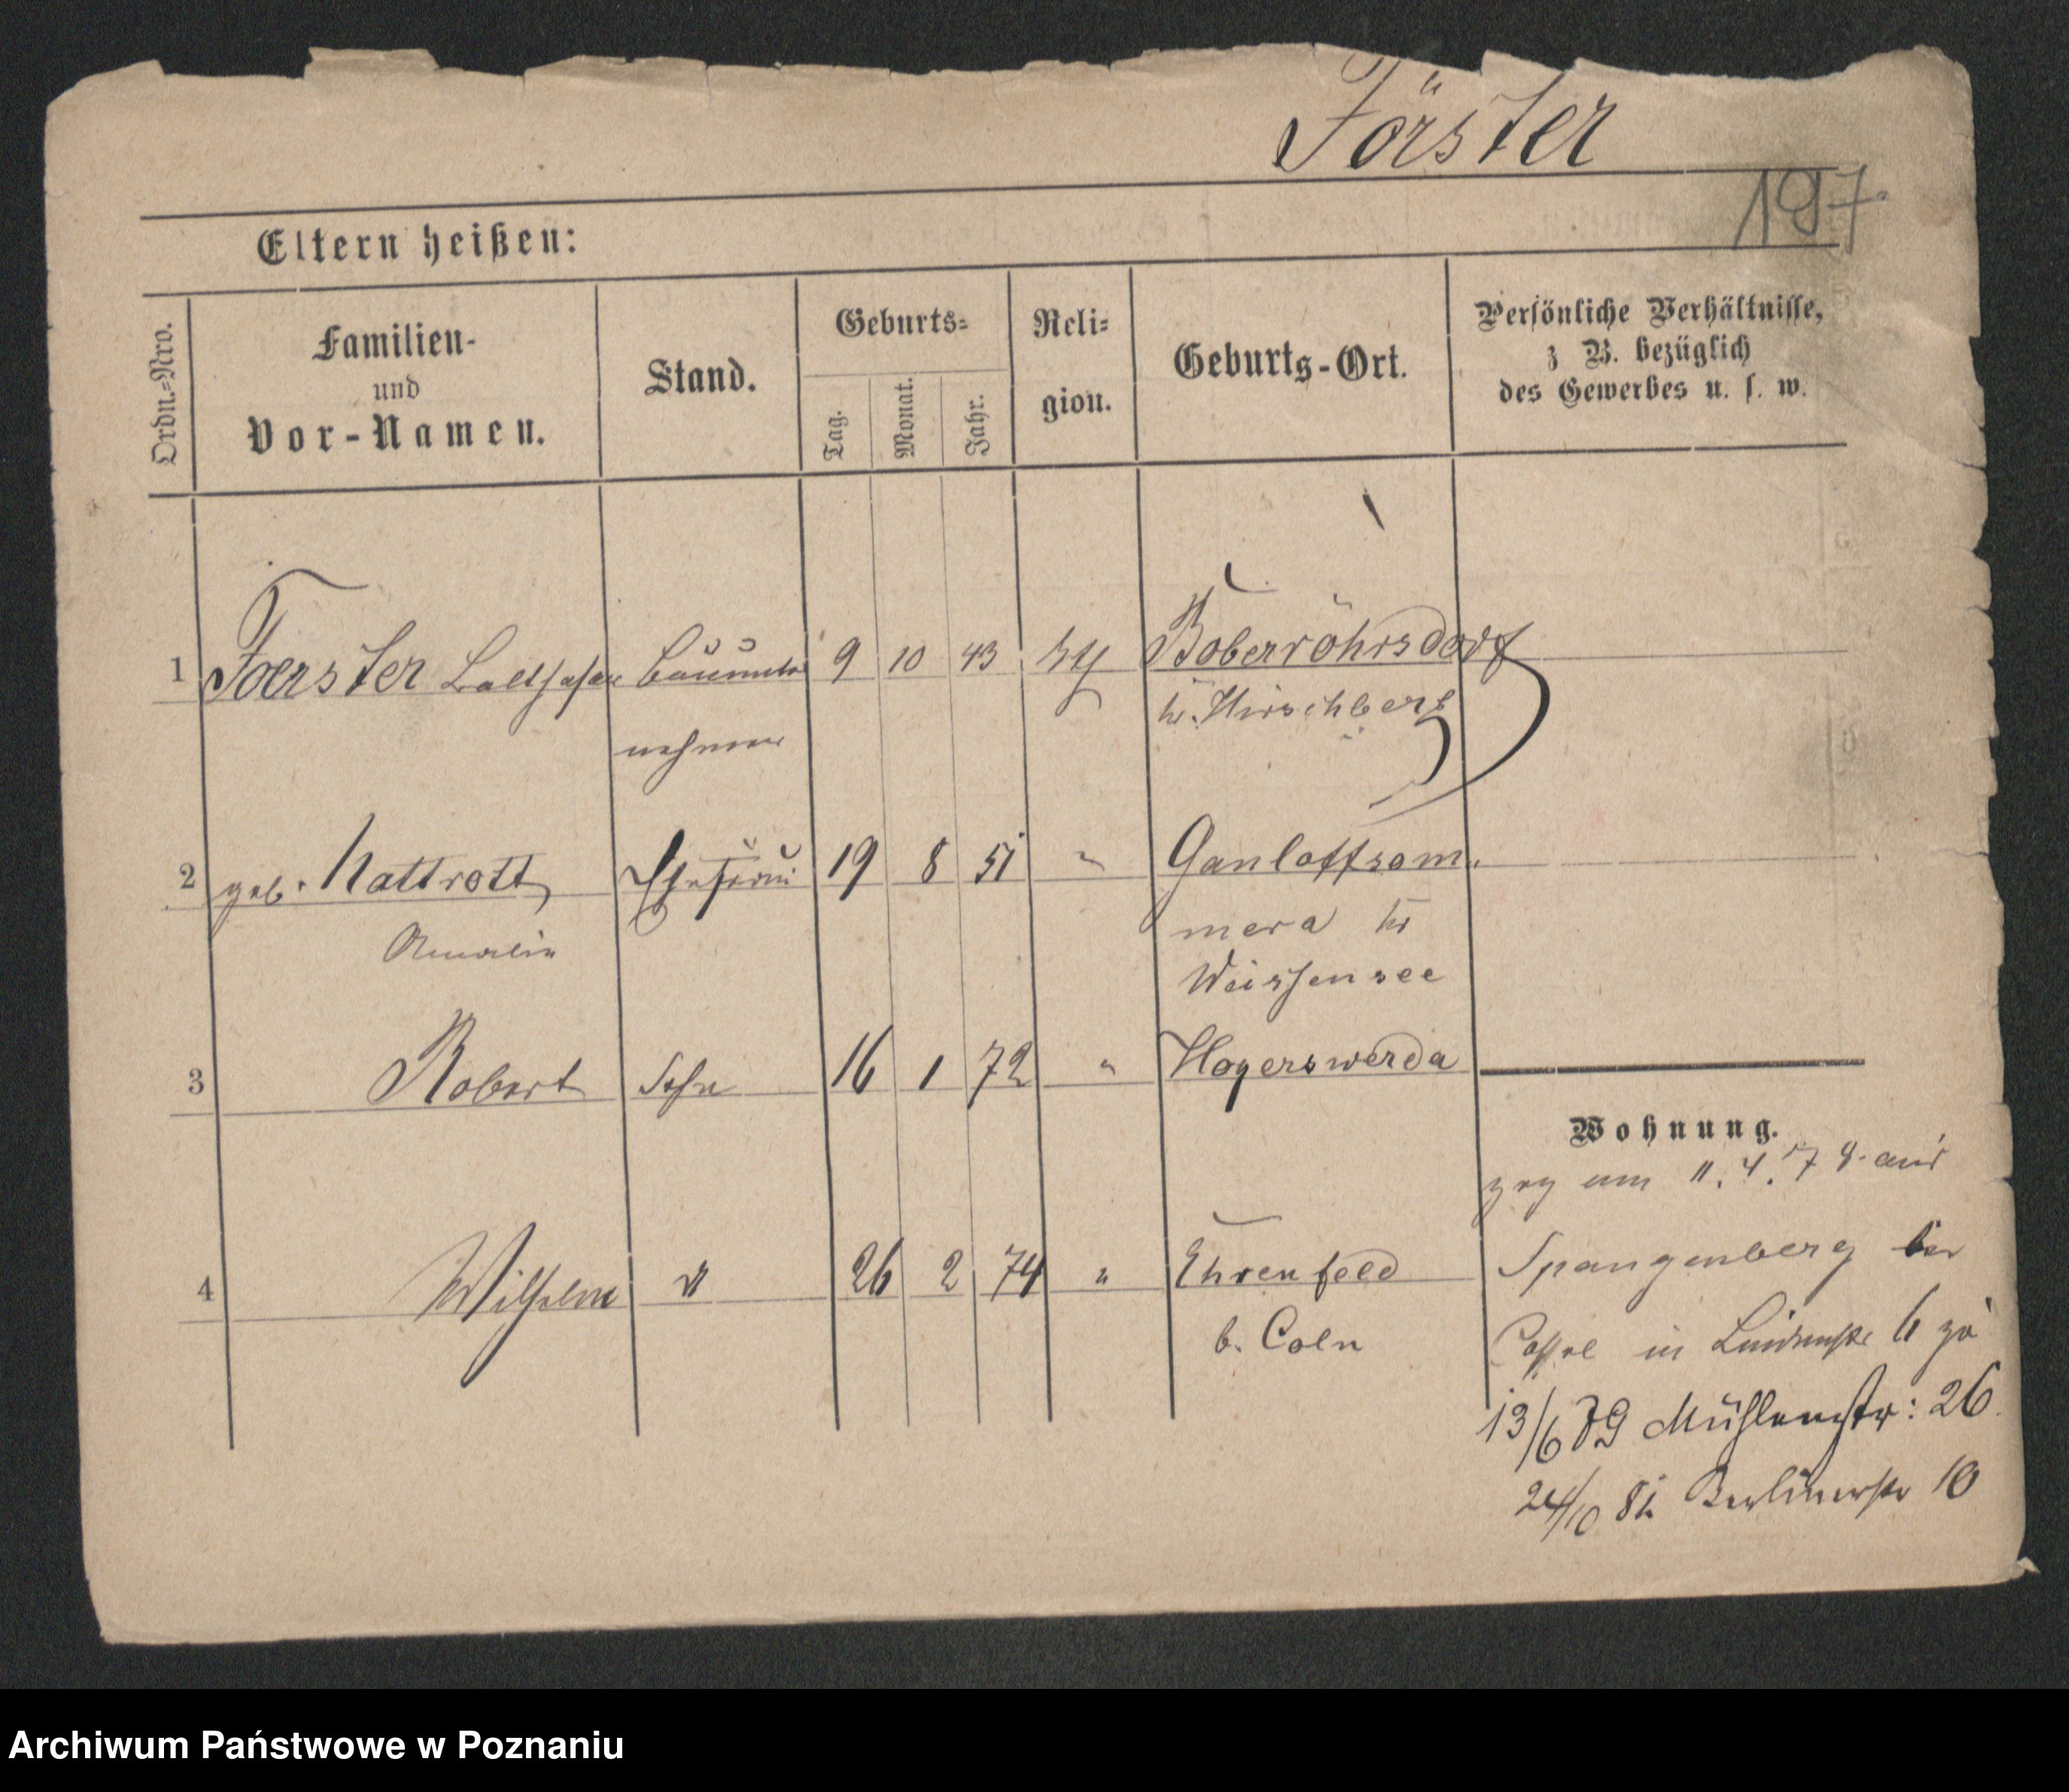 Förster
197
Eltern heißen:
Ordn.-Nro.
Familien-
und
Vor-Namen.
Stand.
Geburts-
Tag.
Monat.
Jahr.
Reli-
gion.
Geburts-Ort.
Persönliche Verhältnisse,
z B. bezüglich
des Gewerbes u. s. w.
1 Foerster Balthasar Bauunter 9 10 43 Boberröhrsdorf
nehmer Kr. Hirschberg
2 geb. Nattrott Ehefrau 19 8 51 " Ganloffsöm„
Amalie mera Kr
Weissensee
3 Robert Sohn 16 1 72 " Hoyerswerda
Wohnung.
zog am 11. 4. 78 aus
4 Wilhelm " 26 2 74 " Ehrenfeld
Spangenberg bei
b. Coln
Cassel in Lindenstr 6 zu
13/6 79 Mühlenstr: 26
24/10 81 Berlinerstr 10
Archiwum Państwowe w Poznaniu